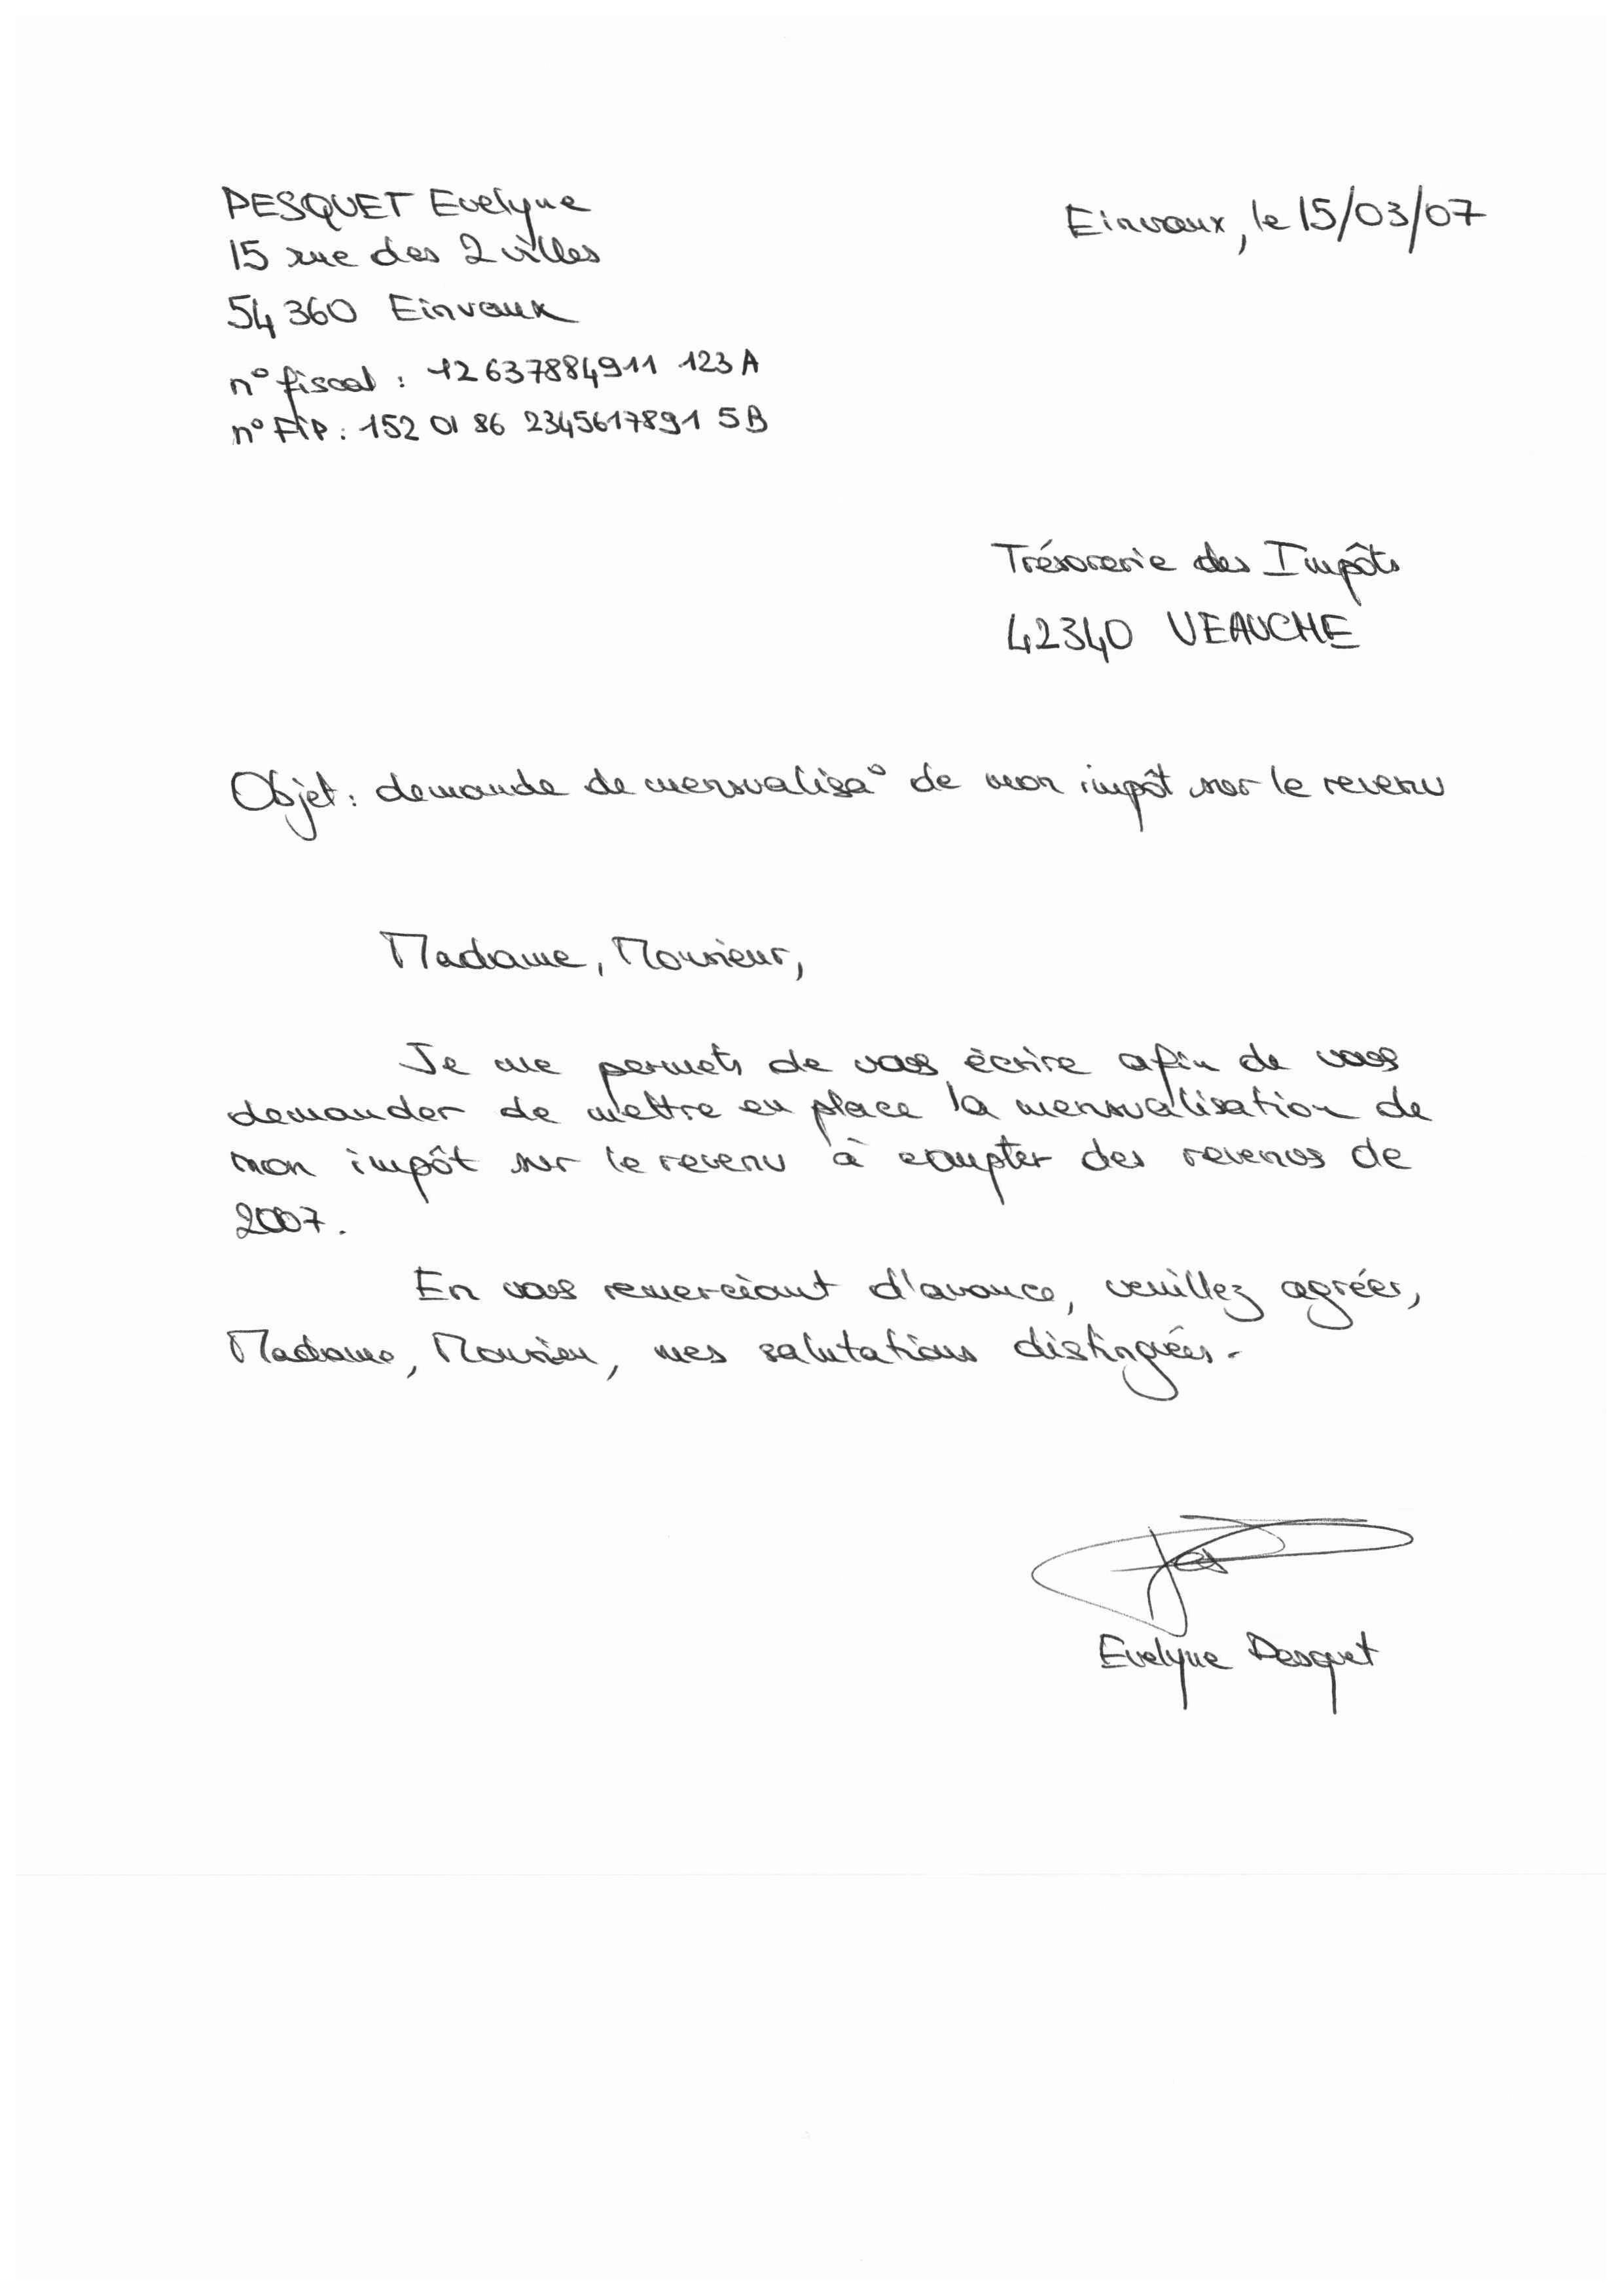 PESQUET Evelyne
15 rue des 2 villes
54 360 Einvaux
n° fiscal : 12 637884911 123 A
n° FIP : 152 01 86 2345617891 5B
Einvaux, le 15/03/07
Trésorerie des Impôts
42340 VEAUCHE
Objet : demande de mensualisa° de mon impôt sur le revenu
Madame, Monsieur,
Je me permets de vous écrire afin de vous
demander de mettre en place la mensualisation de
mon impôt sur le revenu à compter des revenus de
2007.
En vous remerciant d'avance, veuillez agréer,
Madame, Monsieur, mes salutations distinguées.
Evelyne Pesquet